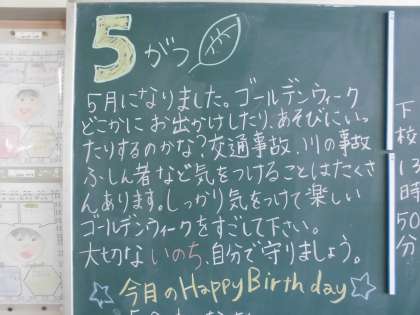 5がつ
5月になりました。ゴールデンウィーク
どこかにお出かけしたり、あそびにいっ
たりするのかな？交通事故、川の事故
ふしん者など気をつけることはたくさ
んあります。しっかり気をつけて楽しい
ゴールデンウィークをすごして下さい。
大切ないのち、自分で守りましょう。
☆今月のHappy Birthday☆
下校
13時50分